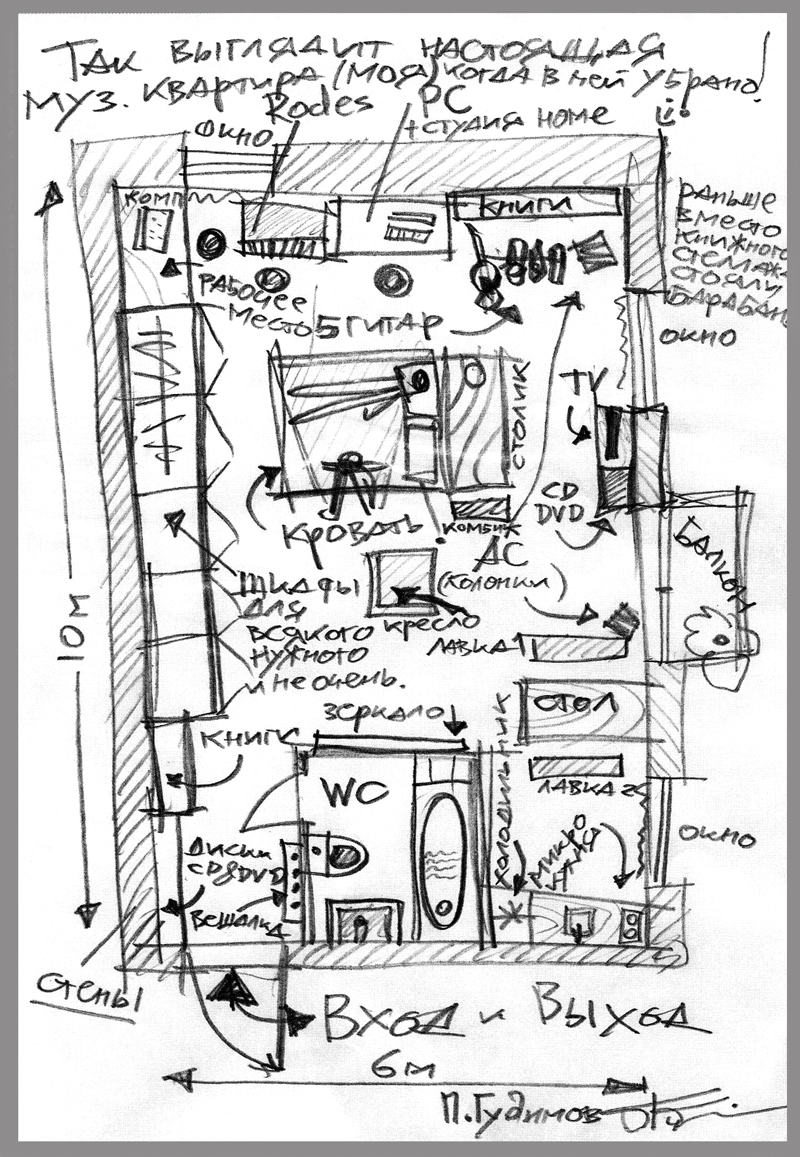 Так выглядит настоящая
муз. квартира (моя) когда в ней убрано!
Rodes
PC
+студия home
окно
книги
раньше
вместо
книжного
стелажа
стояли
барабаны
рабочее
место
5 гитар
окно
TV
столик
CD
DVD
кровать
комбик
АС
(колонки)
балкон
10 м
шкафы
для
всякого
нужного
и не очень.
кресло
лавка 1
зеркало
стол
книги
WC
холодильник
лавка 2
окно
диски
CD&DVD
вешалка
стены
Вход и Выход
6 м
П.Гудимов